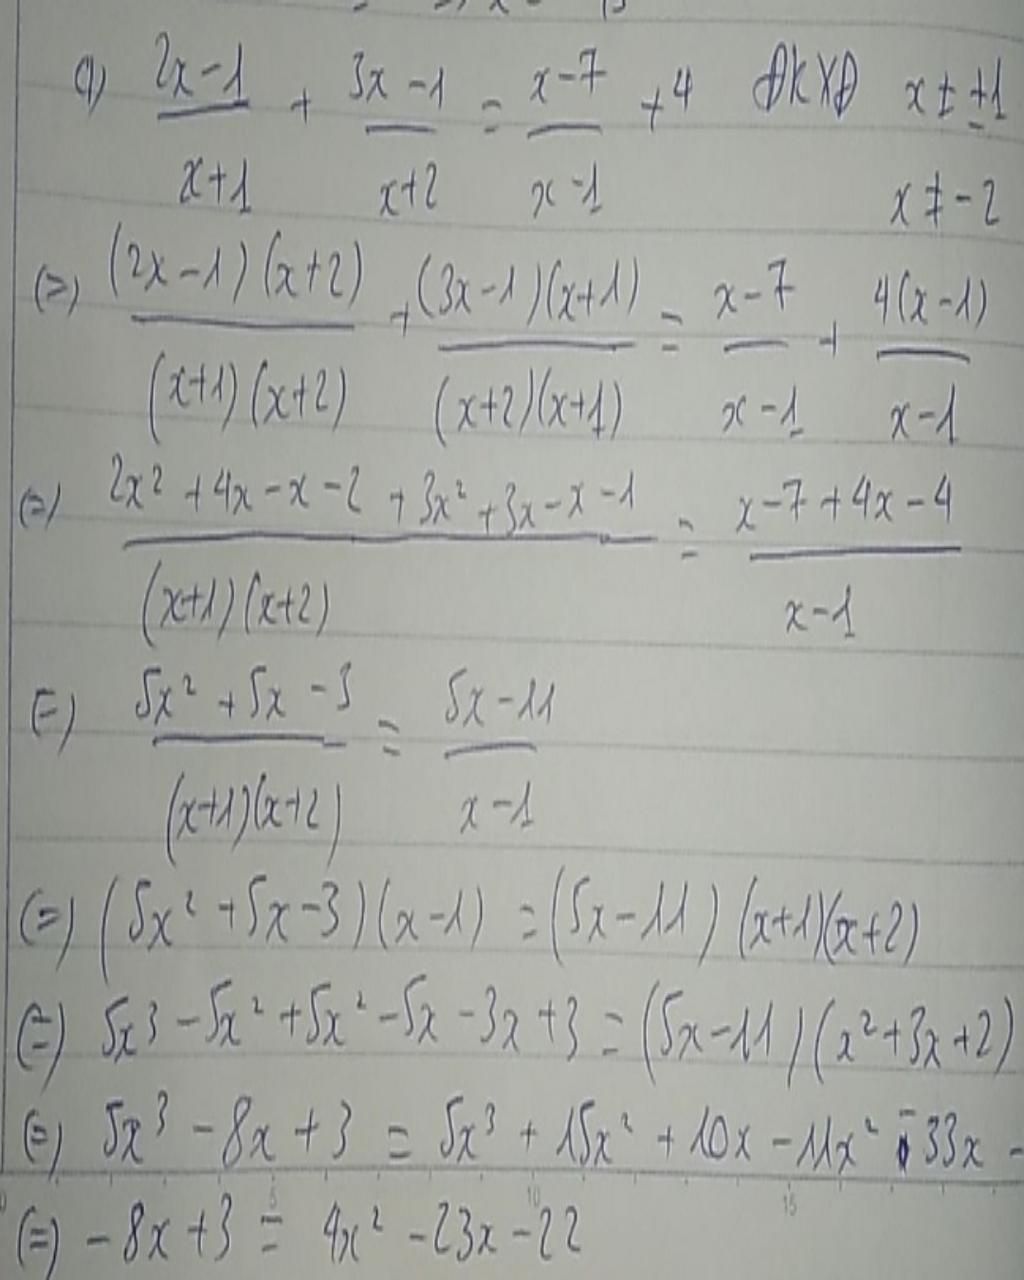 a) (2x-1)/(x+1) + (3x-1)/(x+2) = (x-7)/(x-1) + 4 ĐKXĐ x ≠ ±1
x ≠ -2
(=) ((2x-1)(x+2))/((x+1)(x+2)) + ((3x-1)(x+1))/((x+2)(x+1)) = (x-7)/(x-1) + (4(x-1))/(x-1)
(=) (2x² + 4x - x - 2 + 3x² + 3x - x - 1)/((x+1)(x+2)) = (x-7+4x-4)/(x-1)
(=) (5x² + 5x - 3)/((x+1)(x+2)) = (5x-11)/(x-1)
(=) (5x² + 5x - 3)(x-1) = (5x-11)(x+1)(x+2)
(=) 5x³ - 5x² + 5x² - 5x - 3x + 3 = (5x-11)(x² + 3x + 2)
(=) 5x³ - 8x + 3 = 5x³ + 15x² + 10x - 11x² - 33x -
5 10 15
(=) -8x + 3 = 4x² - 23x - 22